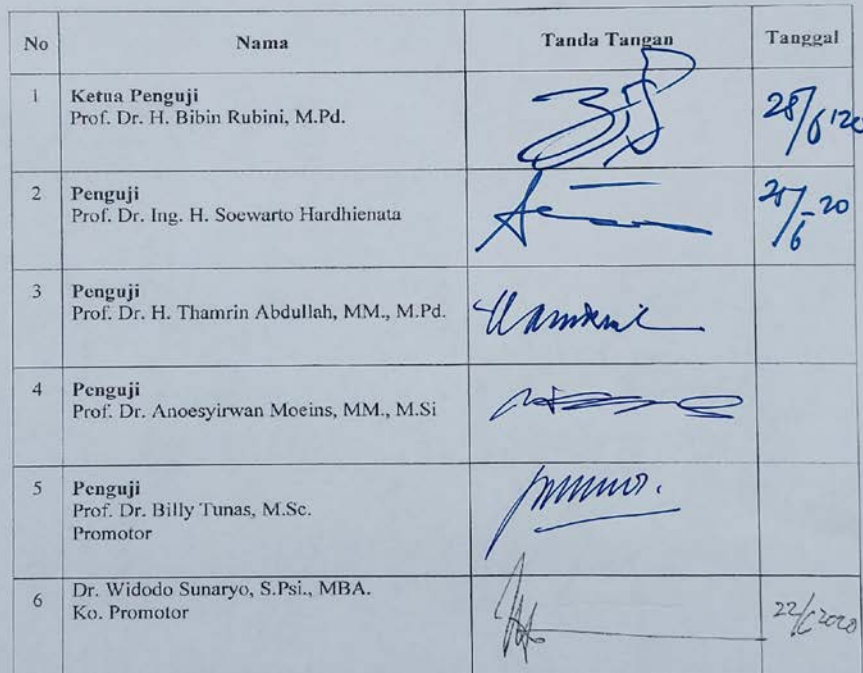 No Nama Tanda Tangan Tanggal
1 Ketua Penguji
Prof. Dr. H. Bibin Rubini, M.Pd.
28/6 '20
2 Penguji
Prof. Dr. Ing. H. Soewarto Hardhienata
3 Penguji
Prof. Dr. H. Thamrin Abdullah, MM., M.Pd.
4 Penguji
Prof. Dr. Anoesyirwan Moeins, MM., M.Si
5 Penguji
Prof. Dr. Billy Tunas, M.Sc.
Promotor
6 Dr. Widodo Sunaryo, S.Psi., MBA.
Ko. Promotor
22/6 2020